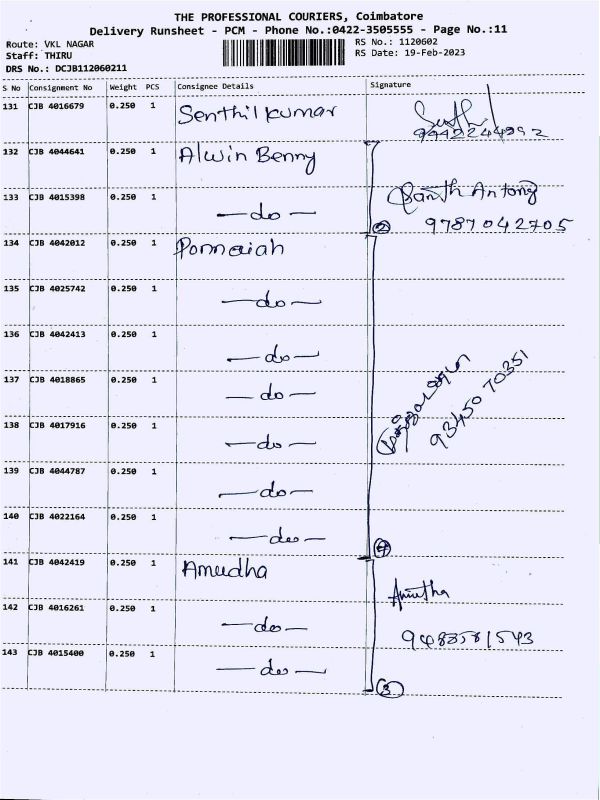 THE PROFESSIONAL COURIERS, Coimbatore
Delivery Runsheet - PCM - Phone No.:0422-3505555 - Page No.:11
Route: VKL NAGAR
Staff: THIRU
DRS No.: DCJB112060211
RS No.: 1120602
RS Date: 19-Feb-2023
S No Consignment No Weight PCS Consignee Details Signature
131 CJB 4016679 0.250 1 Senthil kumar
9942244992
132 CJB 4044641 0.250 1 Alwin Benny
133 CJB 4015398 0.250 1 —do— Santh Antony
② 9787042705
134 CJB 4042012 0.250 1 Ponnaiah
135 CJB 4025742 0.250 1 —do—
136 CJB 4042413 0.250 1 —do—
137 CJB 4018865 0.250 1 —do—
93450 70351
138 CJB 4017916 0.250 1 —do—
139 CJB 4044787 0.250 1 —do—
140 CJB 4022164 0.250 1 —do—
141 CJB 4042419 0.250 1 Amudha
Amutha
142 CJB 4016261 0.250 1 —do—
9488581543
143 CJB 4015400 0.250 1 —do— ③